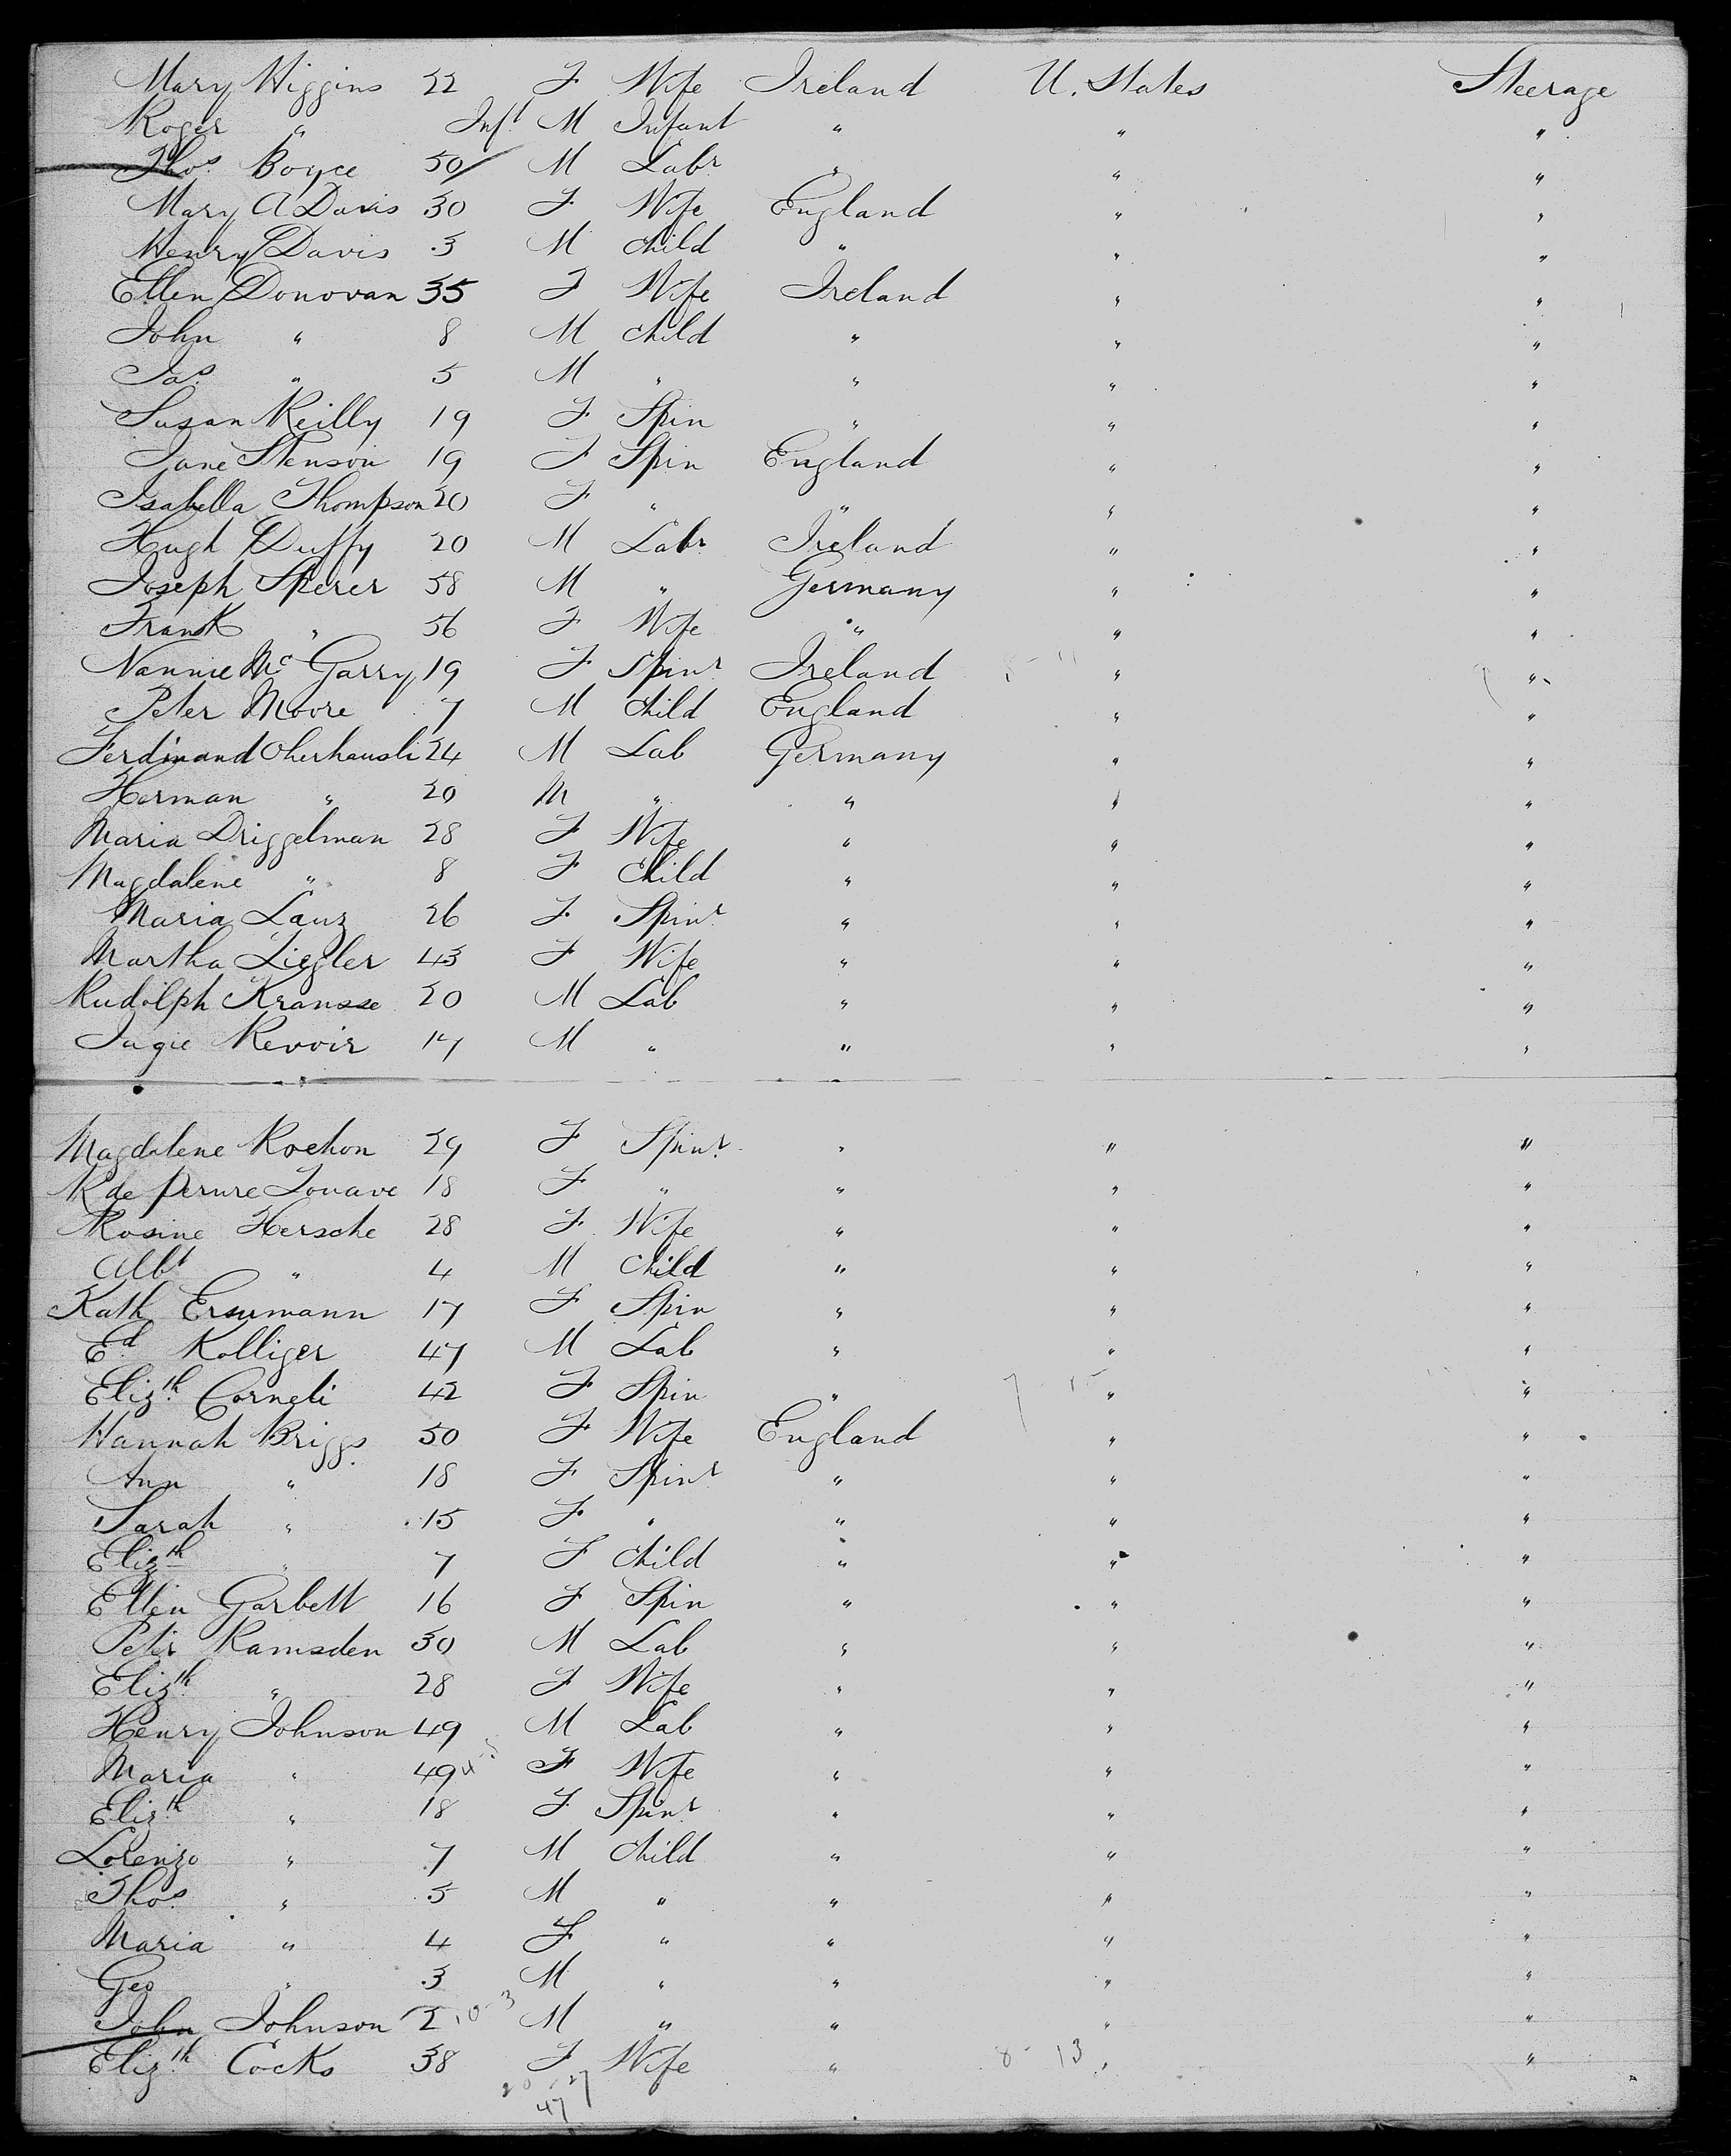 Mary Higgins 22 F Wife Ireland U. States Steerage
Roger " Inft M Infant " " "
Thos Boyce 50 M Labr " " "
Mary A Davis 30 F Wife England " "
Henry Davis 3 M Child " " "
Ellen Donovan 35 F Wife Ireland " "
John " 8 M Child " " "
Jas " 5 M " " " "
Susan Reilly 19 F Spin " " "
Jane Stenson 19 F Spin England " "
Isabella Thompson 20 F " " " "
Hugh Duffy 20 M Labr Ireland " "
Joseph Sperer 58 M " Germany " "
Frank " 56 F Wife " " "
Nannie Mc Garry 19 F Spinr Ireland " "
Peter Moore 7 M Child England " "
Ferdinand Oherhausli 24 M Lab Germany " "
Herman " 20 M " " " "
Maria Driggelman 28 F Wife " " "
Magdalene " 8 F Child " " "
Maria Lanz 26 F Spinr " " "
Martha Liegler 43 F Wife " " "
Rudolph Kransse 20 M Lab " " "
Jugie Revoir 17 M " " " "
Magdalene Rochon 29 F Spinr " " "
R de Perure Louave 18 F " " " "
Rosine Hersche 28 F Wife " " "
Albt " 4 M Child " " "
Kath 17 F Spin " " "
Ed Kolliger 47 M Lab " " "
Elizth Corneli 42 F Spin " " "
Hannah Briggs 50 F Wife England " "
Ann " 18 F Spinr " " "
Sarah " 15 F " " " "
Elizth " 7 F Child " " "
Ellen Garbett 16 F Spin " " "
Peter Ramsden 30 M Lab " " "
Elizth " 28 F Wife " " "
Henry Johnson 49 M Lab " " "
Maria " 49 F Wife " " "
Elizth " 18 F Spinr " " "
Lorenzo " 7 M Child " " "
Thos " 5 M " " " "
Maria " 4 F " " " "
Geo " 3 M " " " "
John Johnson 2 M " " " "
Elizth Cocks 38 F Wife " 8 - 13 " "
20 27
47